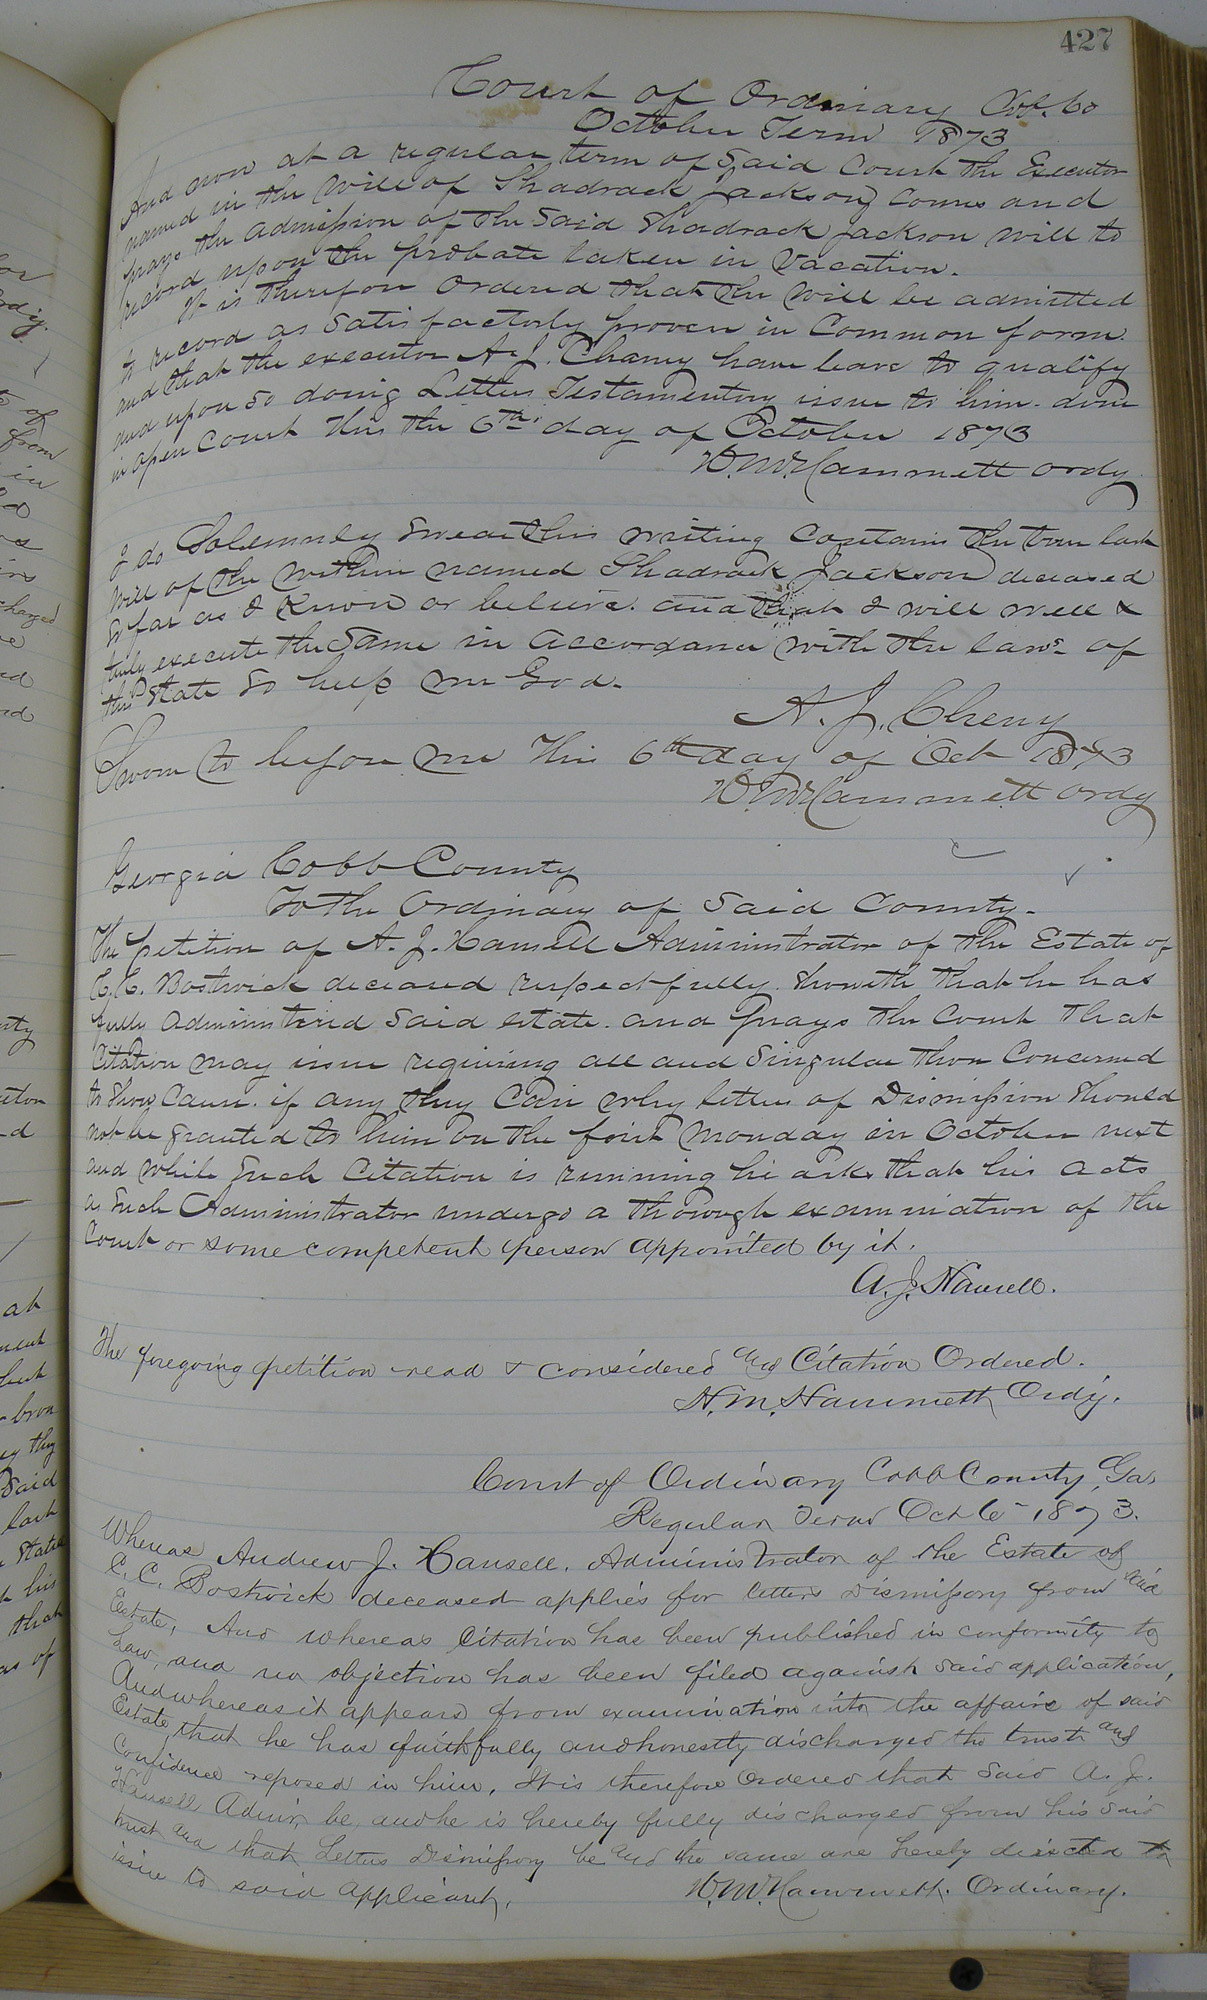 427
Court of Ordinary Cob. Co
October Term 1873
And now at a regular term of Said Court the Executor
named in the Will of Shadrack Jackson Comes and
prays the admission of the Said Shadrack Jackson will to
record upon the probate taken in Vacation.
It is Therefore Ordered that the Will be admitted
to record as Satisfactorly proven in Common form.
and that the executor A. J. Chaney have leave to qualify
and upon So doing Letters Testamentory issue to him. done
in open Court this the 6th day of October 1873
H. M. Hammett Ordy
I do Solemnly Swear this writing Contains the true last
Will of the within named Shadrack Jackson deceased
So far as I Know or believe. and that I will well &
truly execute the Same in accordance with the laws of
this State So help me God.
A. J. Cheny
Sworn to before me This 6th day of Oct 1873
H. M. Hammett Ordy
Georgia Cobb County
To the Ordinary of Said County.
The petition of A. J. Hansell Administrator of the Estate of
C. C. Bostwick deceased respectfully Showeth that he has
fully administered Said estate. and Prays the Court that
Citation may issue requiring all and Singular those Concerned
to Show Cause. if any they Can why letters of Dismission Should
not be granted to him on the first Monday in October next
and while Such Citation is running he asks that his acts
as Such Administrator undergo a thorough examination of the
Court or some competent person appointed by it.
A. J. Hansell.
The foregoing petition read & considered and Citation Ordered.
H. M. Hammett Ordy.
Court of Ordinary Cobb County, Ga
Regular Term Oct 6 1873.
Whereas Andrew J. Hansell. Administrator of the Estate of
C. C. Bostwick deceased applies for letters Dismissory from said
Estate, And whereas Citation has been published in conformity to
Law, and no objection has been filed against said application,
And whereas it appears from examination into the affairs of said
Estate that he has faithfully and honestly discharged the trust and
Confidence reposed in him, It is therefore Ordered that said A. J.
Hansell Admir. be, and he is hereby fully discharged from his said
trust and that Letters Dismissory be and the same are hereby directed to
issue to said applicant.
H. M. Hammett. Ordinary.